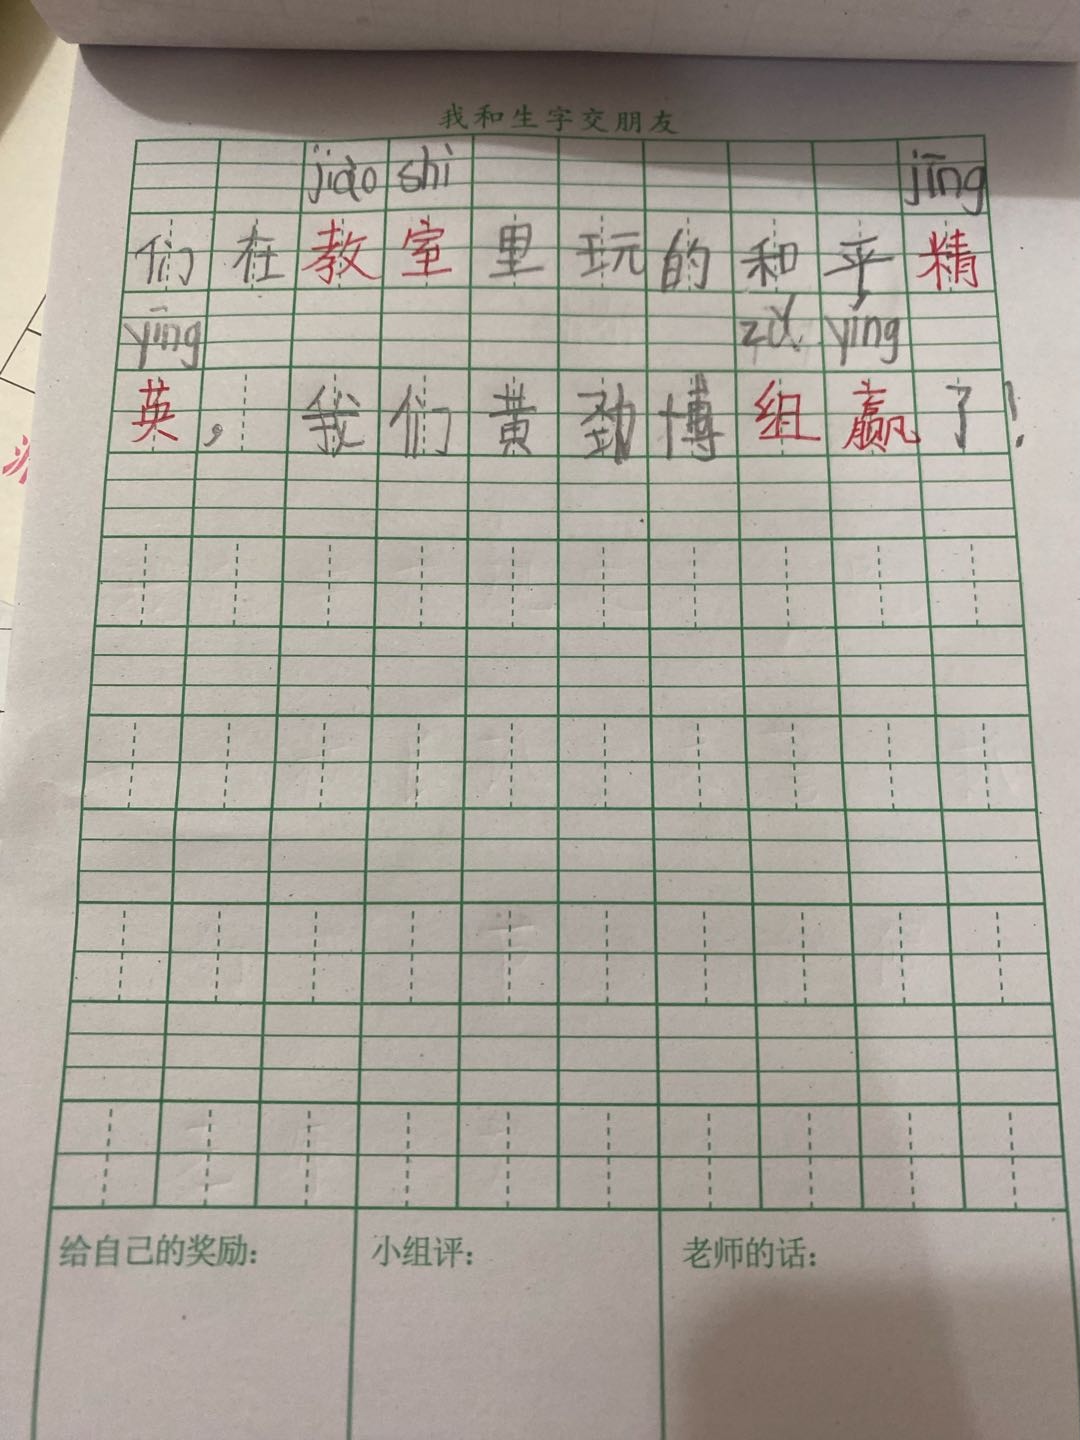 我和生字交朋友
jiào shì jīng
们在教室里玩的和平精
yīng zǔ yíng
英，我们黄劲博组赢了！
给自己的奖励： 小组评： 老师的话：